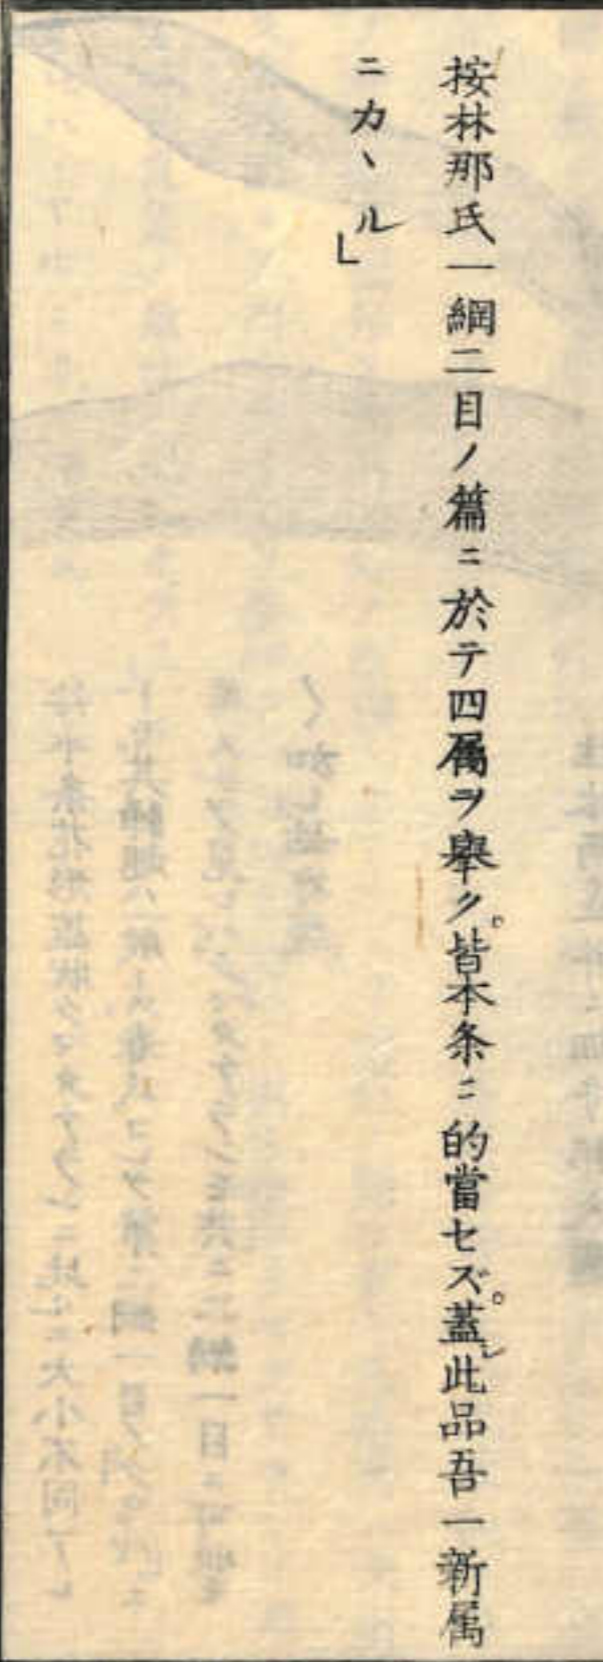 按林那氏一綱二目ノ篇ニ於テ四属ヲ擧ク。皆本条ニ的當セズ。蓋シ此品吾一新属
ニカヽル」